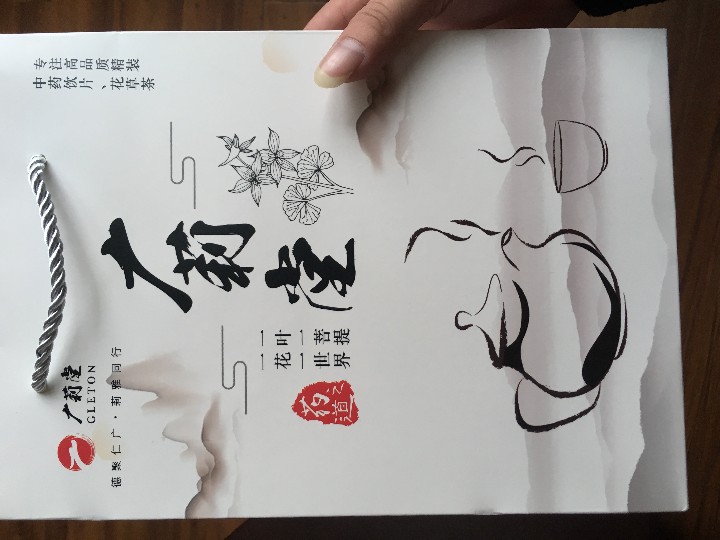 广莉堂
GLETON
德聚仁广·莉雅同行
专注高品质精装
中药饮片、花草茶
广莉堂
一花一世界
一叶一菩提
药之道